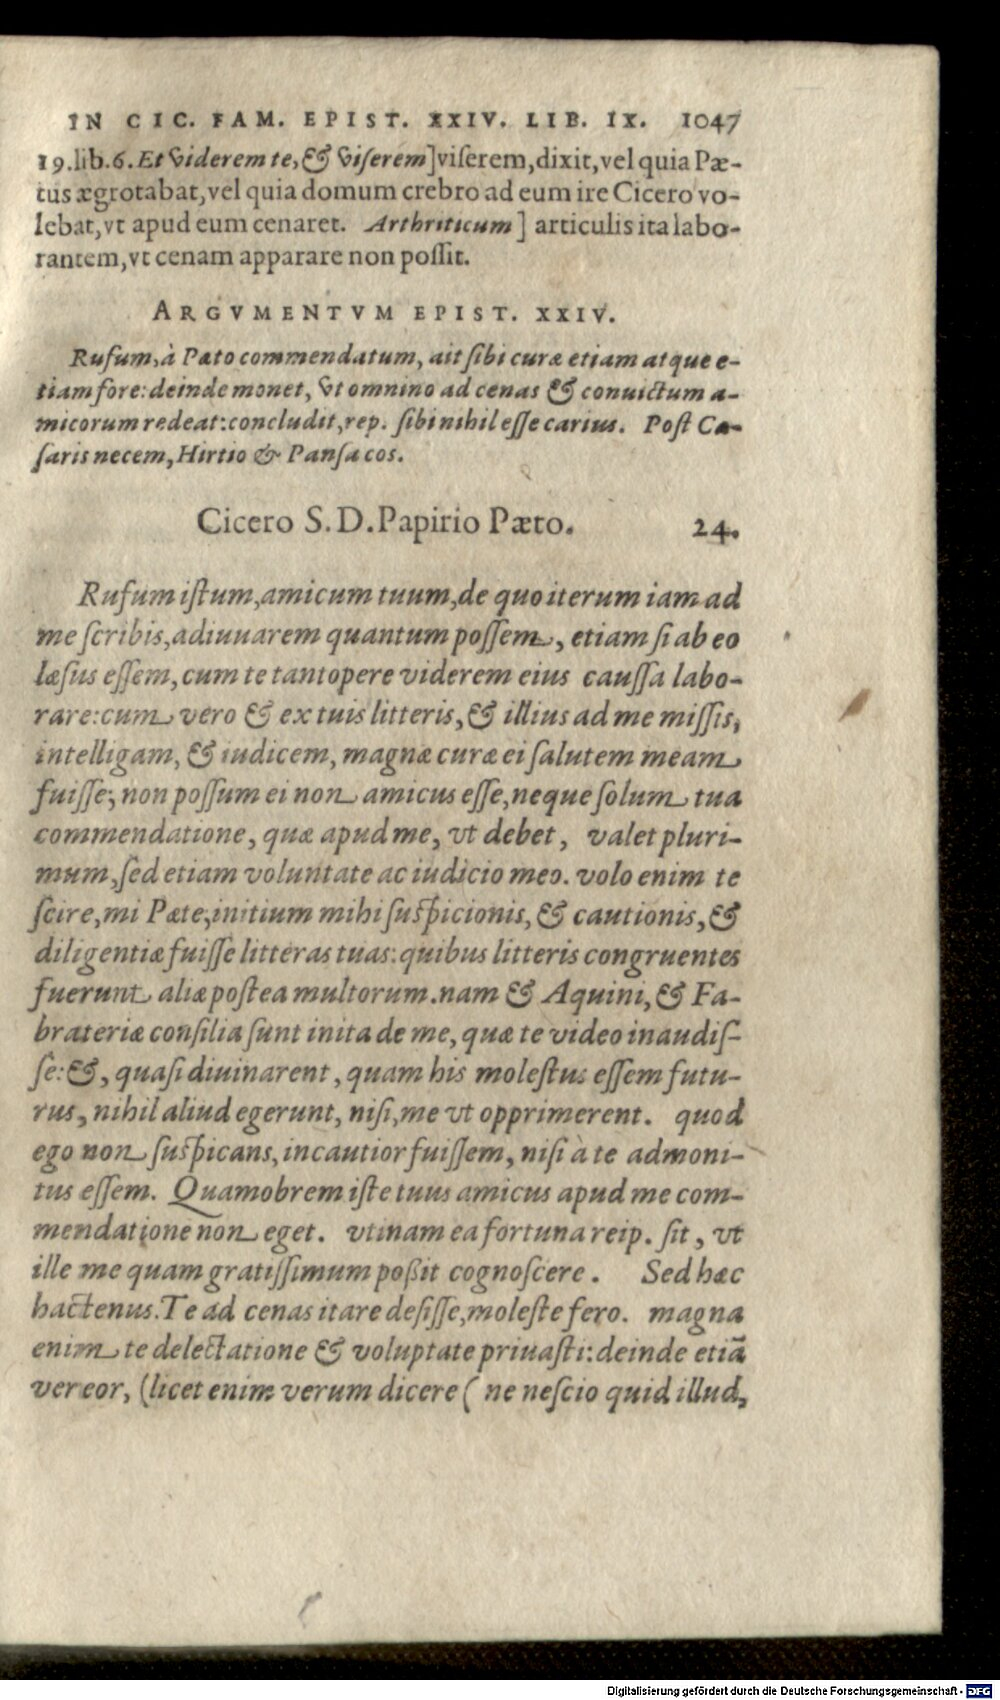 IN CIC. FAM. EPIST. XXIV. LIB. IX. 1047
19.lib.6. Et viderem te, & viserem] viserem, dixit, vel quia Pæ-
tus ægrotabat, vel quia domum crebro ad eum ire Cicero vo-
lebat, vt apud eum cenaret. Arthriticum] articulis ita labo-
rantem, vt cenam apparare non possit.
ARGVMENTVM EPIST. XXIV.
Rufum, à Pæto commendatum, ait sibi curæ etiam atque e-
tiam fore: deinde monet, vt omnino ad cenas & conuictum a-
micorum redeat: concludit, rep. sibi nihil esse carius. Post Cæ-
saris necem, Hirtio & Pansa cos.
Cicero S. D. Papirio Pæto. 24.
Rufum istum, amicum tuum, de quo iterum iam ad
me scribis, adiuuarem quantum possem, etiam si ab eo
læsus essem, cum te tantopere viderem eius caussa labo-
rare: cum vero & ex tuis litteris, & illius ad me missis,
intelligam, & iudicem, magnæ curæ ei salutem meam
fuisse; non possum ei non amicus esse, neque solum tua
commendatione, quæ apud me, vt debet, valet pluri-
mum, sed etiam voluntate ac iudicio meo. volo enim te
scire, mi Pæte, initium mihi suspicionis, & cautionis, &
diligentiæ fuisse litteras tuas: quibus litteris congruentes
fuerunt aliæ postea multorum. nam & Aquini, & Fa-
brateriæ consilia sunt inita de me, quæ te video inaudis-
se: &, quasi diuinarent, quam his molestus essem futu-
rus, nihil aliud egerunt, nisi, me vt opprimerent. quod
ego non suspicans, incautior fuissem, nisi à te admoni-
tus essem. Quamobrem iste tuus amicus apud me com-
mendatione non eget. vtinam ea fortuna reip. sit, vt
ille me quam gratissimum poßit cognoscere. Sed hæc
hactenus. Te ad cenas itare desisse, moleste fero. magna
enim te delectatione & voluptate priuasti: deinde etiā
vereor, (licet enim verum dicere ( ne nescio quid illud,
Digitalisierung gefördert durch die Deutsche Forschungsgemeinschaft - DFG